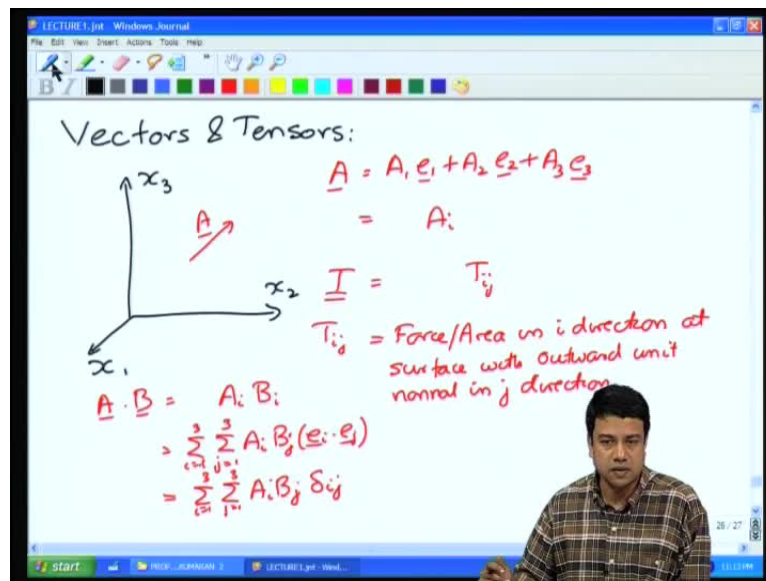 LECTURE1.jnt - Windows Journal
File Edit View Insert Actions Tools Help
B I
Vectors & Tensors:
x₃
A
x₂
x₁
A = A₁ e₁ + A₂ e₂ + A₃ e₃
= Aᵢ
T = Tᵢⱼ
Tᵢⱼ = Force/Area in i direction at
surface with outward unit
normal in j direction
A . B = Aᵢ Bᵢ
= ∑ᵢ₌₁³ ∑ⱼ₌₁³ Aᵢ Bⱼ (eᵢ · eⱼ)
= ∑ᵢ₌₁³ ∑ⱼ₌₁³ Aᵢ Bⱼ δᵢⱼ
26 / 27
start
PROF...KUMARAN 2
LECTURE1.jnt - Wind...